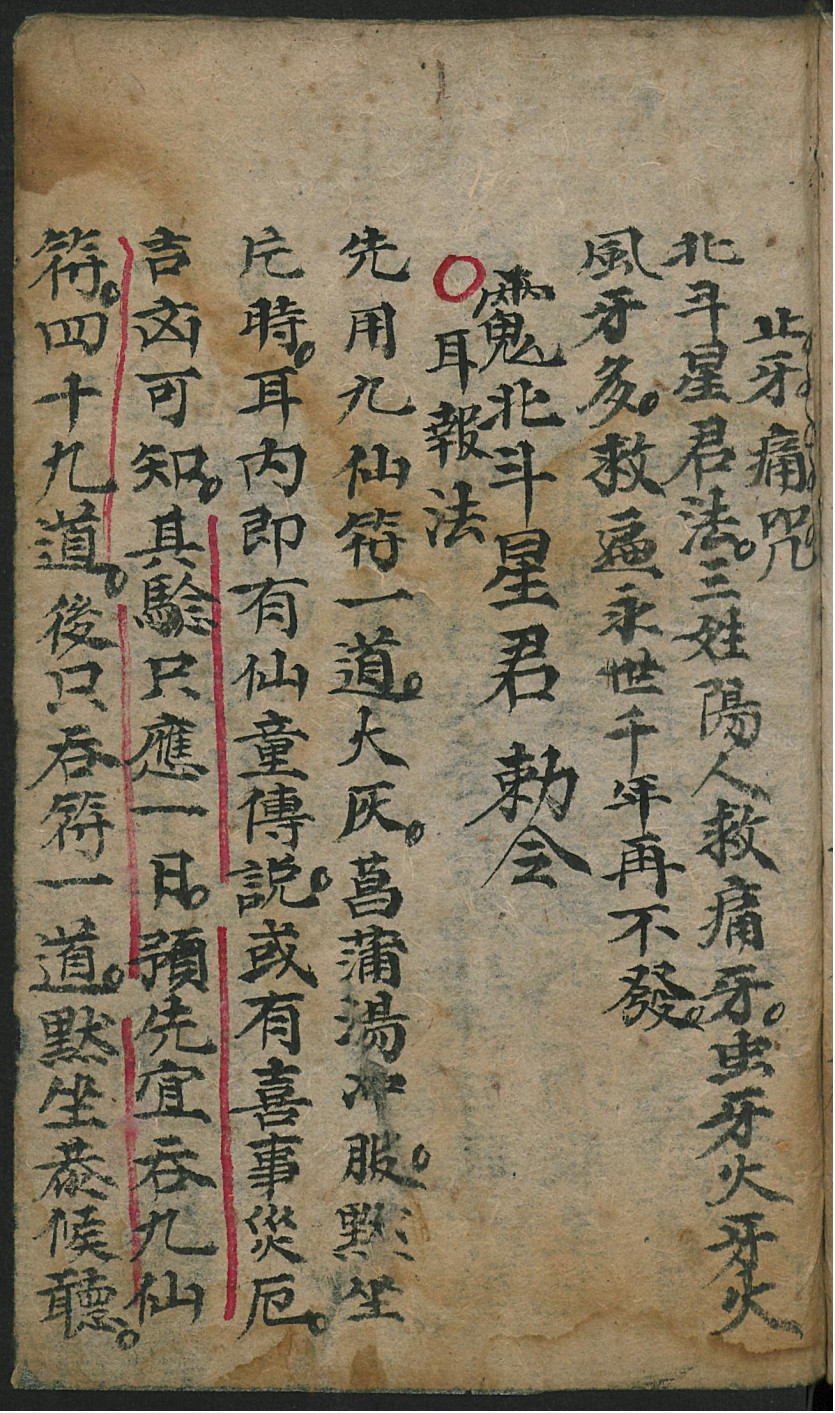 止牙痛咒
北斗星君法。三姓陽人救痛牙。虫牙火牙火
風牙多。救遍永世千年再不發。
北斗星君勅令
耳報法
先用九仙符一道。火灰。菖蒲湯冲服。默坐
片時。耳内即有仙童傳説。或有喜事災厄。
吉凶可知。其驗只應一日。預先宜吞九仙
符。四十九道。後只吞符一道。默坐恭候聽。